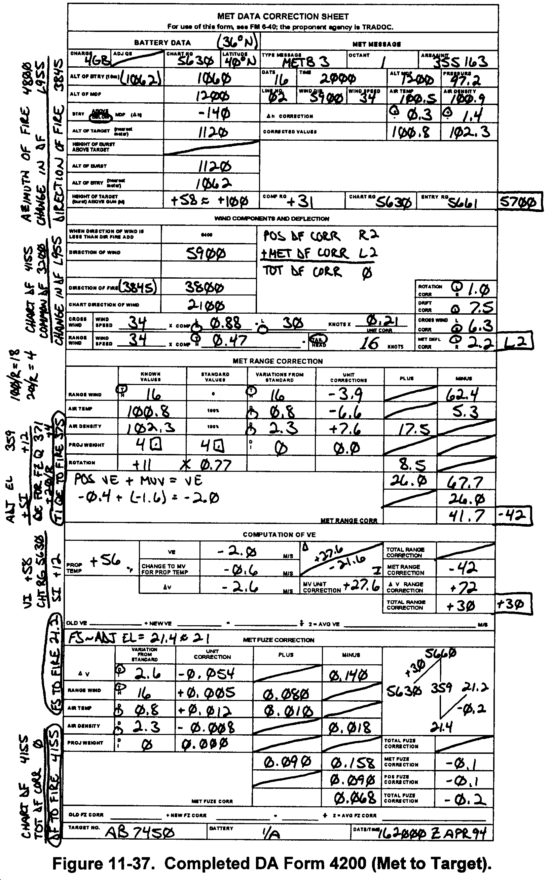 MET DATA CORRECTION SHEET
For use of this form, see FM 6-40; the proponent agency is TRADOC.
BATTERY DATA (36°N) MET MESSAGE
CHARGE 4GB ADJ QE CHART RG 5630 LATITUDE 40°N TYPE MESSAGE METB 3 OCTANT 1 AREA/UNIT 355 163
ALT OF BTRY (10m) (1062) 1060 DATE 16 TIME 2000 ALT MDP 1200 PRESSURE 97.2
ALT OF MDP 1200 LINE NO. 02 WIND DIR 5900 WIND SPEED 34 AIR TEMP 100.5 AIR DENSITY 100.9
BTRY ABOVE BELOW MDP (Δh) -140 Δh CORRECTION 0.3 1.4
ALT OF TARGET (nearest meter) 1120 CORRECTED VALUES 100.8 102.3
HEIGHT OF BURST ABOVE TARGET
ALT OF BURST 1120
ALT OF BTRY (nearest meter) 1062
HEIGHT OF TARGET (burst) ABOVE GUN (M) +58 ≈ +100 COMP RG +31 CHART RG 5630 ENTRY RG 5661 5700
WIND COMPONENTS AND DEFLECTION
WHEN DIRECTION OF WIND IS LESS THAN DIR FIRE ADD 6400 POS DF CORR R2
DIRECTION OF WIND 5900 + MET DF CORR L2
TOT DF CORR 0
DIRECTION OF FIRE (3845) 3800 ROTATION CORR L 1.0
CHART DIRECTION OF WIND 2100 DRIFT CORR L 7.5
CROSS WIND WIND SPEED 34 X COMP 0.88 = 30 KNOTS X 0.21 UNIT CORR CROSS WIND CORR 6.3
RANGE WIND WIND SPEED 34 X COMP 0.47 = TAIL HEAD 16 KNOTS MET DEFL CORR 2.2 L2
MET RANGE CORRECTION
KNOWN VALUES STANDARD VALUES VARIATIONS FROM STANDARD UNIT CORRECTIONS PLUS MINUS
RANGE WIND 16 0 16 -3.9 62.4
AIR TEMP 100.8 100% 0.8 -6.6 5.3
AIR DENSITY 102.3 100% 2.3 +7.6 17.5
PROJ WEIGHT 4□ 4□ 0 0.0
ROTATION +11 X 0.77 8.5
POS VE + MVV = VE 26.0 67.7
-0.4 + (-1.6) = -2.0 26.0
MET RANGE CORR 41.7 -42
COMPUTATION OF VE
PROP TEMP +56 VE -2.0 M/S +27.6 -21.6 TOTAL RANGE CORRECTION
CHANGE TO MV FOR PROP TEMP -0.6 M/S MET RANGE CORRECTION -42
ΔV -2.6 M/S MV UNIT CORRECTION +27.6 ΔV RANGE CORRECTION +72
TOTAL RANGE CORRECTION +30 +30
OLD VE + NEW VE = ÷ 2 = AVG VE M/S
FS~ADJ EL = 21.4 ≈ 21 MET FUZE CORRECTION
VARIATION FROM STANDARD UNIT CORRECTION PLUS MINUS
ΔV 2.6 -0.054 0.140
RANGE WIND 16 +0.005 0.080
AIR TEMP 0.8 +0.012 0.010
AIR DENSITY 2.3 -0.008 0.018
PROJ WEIGHT 0 0.000 TOTAL FUZE CORRECTION
0.090 0.158 MET FUZE CORRECTION -0.1
0.090 POS FUZE CORRECTION -0.1
MET FUZE CORR 0.068 TOTAL FUZE CORRECTION -0.2
+30 5660
5630 359 21.2
-0.2
21.4
OLD FZ CORR + NEW FZ CORR = ÷ 2 = AVG FZ CORR
TARGET NO. AB 7450 BATTERY 1/A DATE/TIME 162000 Z APR 94
AZIMUTH OF FIRE 4800
CHANGE IN DF L955
DIRECTION OF FIRE 3845
CHART DF 4155
COMMON DF 3200
CHANGE IN DF L955
100/R = 18
20/R = 4
ADJ EL 359
+ SI +12
QE FOR FZ Q 371
+ 20/R +4
TI QE TO FIRE 375
VI +58
CHT RG 5630
SI +12
FS TO FIRE 21.2
CHART DF 4155
TOT DF CORR 0
DF TO FIRE 4155
Figure 11-37. Completed DA Form 4200 (Met to Target).